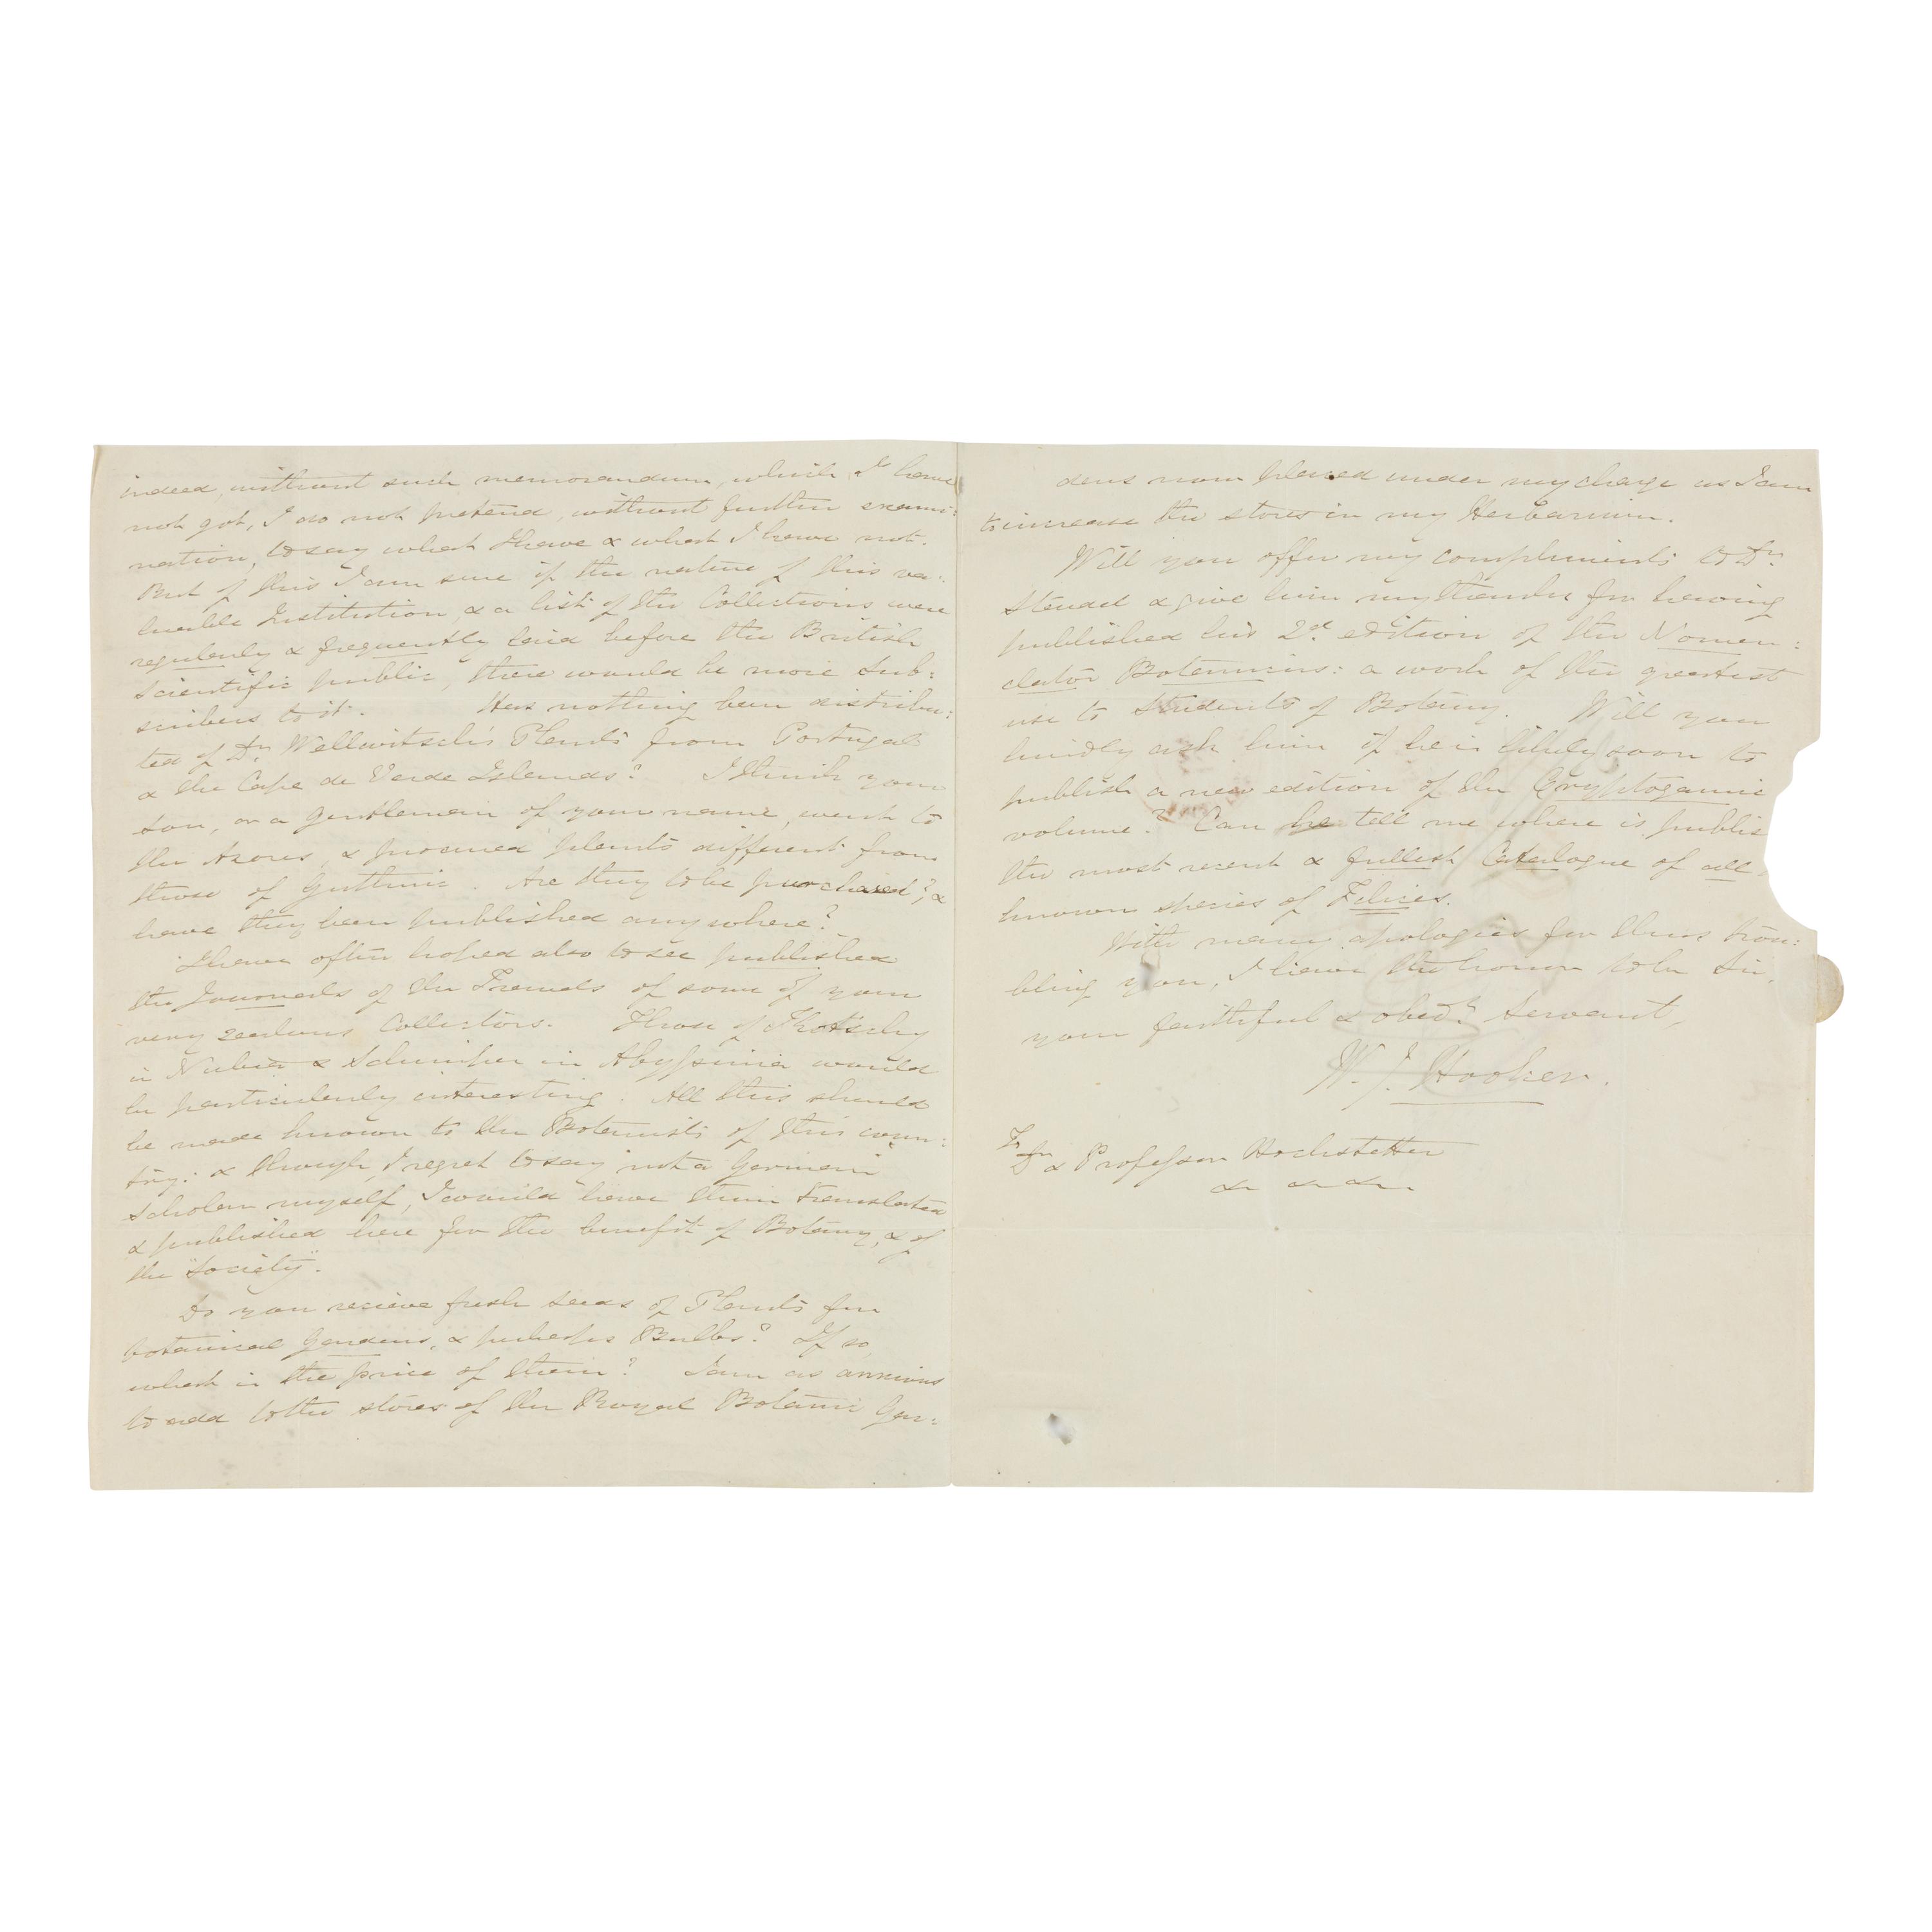 indeed, without such memorandum, which I have
not got, I do not pretend, without further exami:
nation, to say what I have & what I have not.
But of this I am sure if the nature of this va:
luable Institution, & a list of the Collections were
regularly & frequently laid before the British
scientific public, there would be more Sub:
scribers to it. Has nothing been distribu:
ted of Dr. Wellwitsch's Plants from Portugal
& the Cape de Verde Islands? I think your
son, or a gentleman of your name, went to
the Azores, & procured plants different from
those of Guthnic. Are they to be purchased?, &
have they been published any where?
I have often hoped also to see published
the Journals of the Travels of some of your
very zealous Collectors. Those of Kotschy
in Nubia & Schimper in Abyssinia would
be particularly interesting. All this should
be made known to the Botanists of this coun:
try: & though, I regret to say not a German
scholar myself, I would have them translated
& published here for the benefit of Botany, & of
the "Society".
Do you recieve fresh seeds of Plants for
botanical gardens, & perhaps Bulbs? If so,
what is the price of them? I am as anxious
to add to the stores of the Royal Botanic Gar:
dens now placed under my charge as I am
to increase the stores in my Herbarium.
Will you offer my compliments to Dr.
Steudel & give him my thanks for having
published his 2d. edition of the Nomen:
clator Botanicus: a work of the greatest
use to Students of Botany. Will you
kindly ask him if he is likely soon to
publish a new edition of the Cryptogamic
volume? Can he tell me where is public
the most recent & fullest Catalogue of all
known species of Filices.
With many apologies for thus trou:
bling you, I have the honor to be Sir,
your faithful & obedt. Servant,
W. J. Hooker.
To
Dr & Professor Hochstetter
&c &c &c.